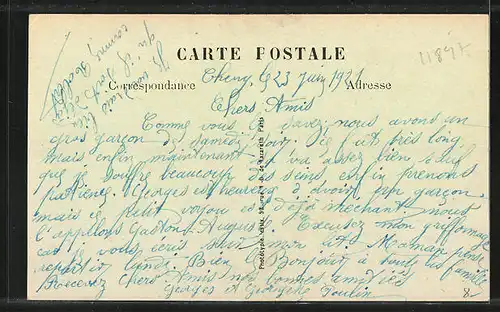 CARTE POSTALE
Correspondance
Adresse
Cheny le 23 Juin 1921
Chers Amis
Comme vous le savez nous avons un
gros garçon de Samedi soir. Ce fut très long
mais enfin maintenant va assez bien sauf
que je souffre beaucoup des seins enfin prenons
patience. Georges est heureux d'avoir un garçon
mais ce petit voyou est déjà méchant. nous
l'appelons Gaston Auguste. Excusez mon griffonnage
car je vous écris sur mon lit. Maman pense
repartir Lundi. Bien le Bonjour à toute la famille
Recevez Chers Amis nos bonnes amitiés
Georges et Georgette Poulin